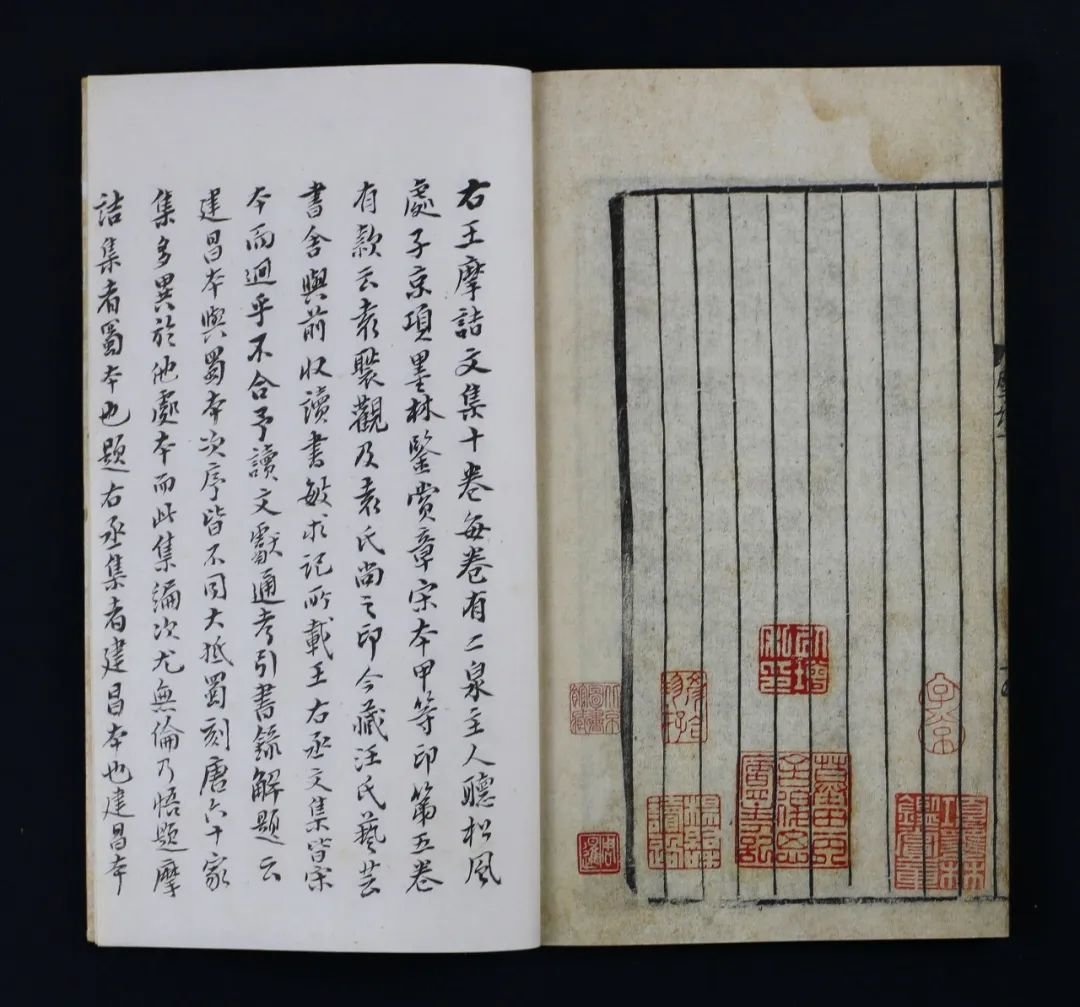 右王摩詰文集十卷每卷有二泉主人聽松風
處子京項墨林鑒賞章宋本甲等印第五卷
有款云袁褧觀及袁氏尚之印今藏汪氏藝芸
書舍與前收讀書敏求記所載王右丞文集皆宋
本而迥乎不合予讀文獻通考引書錄解題云
建昌本與蜀本次序皆不同大抵蜀刻唐六十家
集多異於他處本而此集編次尤無倫乃悟題摩
詰集者蜀本也題右丞集者建昌本也建昌本
子京
項墨林鑑賞章
北京圖書館藏
周暹